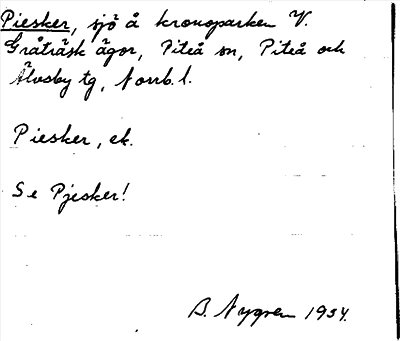 Piesker, sjö å kronoparken V.
Gråträsk ägor, Piteå sn, Piteå och
Älvsby tg, Norrb. l.
Piesker, ek.
Se Pjesker!
B. Nygren 1934.